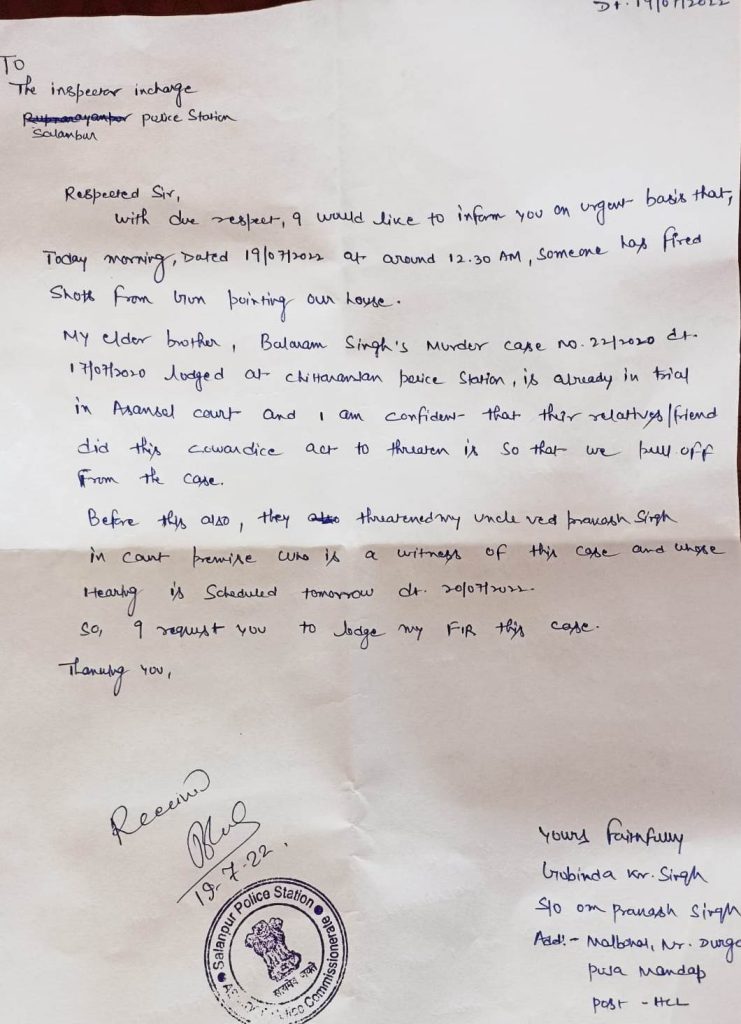 Dt. 19/07/2022
TO
The inspector incharge
Rupnarayanpor police Station
Salanpur
Respected Sir,
with due respect, I would like to inform you on urgent basis that,
Today morning, Dated 19/07/2022 at around 12.30 AM, someone has fired
Shots from Gun pointing our house.
My elder brother, Balaram Singh's Murder case no. 22/2020 dt.
17/07/2020 lodged at Chittaranjan police Station, is already in trial
in Asansol court and I am confident that their relatives/friend
did this cowardice act to threaten is so that we pull off
From the case.
Before this also, they also threatened my uncle ved prakash Singh
in court premise who is a witness of this case and whose
Hearing is Scheduled tomorrow dt. 20/07/2022.
So, I request you to lodge my FIR this case.
Thanking you,
Received
19-7-22.
Salanpur Police Station
Commissionerate
सत्यमेव जयते
Yours Faithfully
Gobinda Kr. Singh
S/o om prakash Singh
Add:- Malbohal, Nr. Durga
puja Mandap
post - HCL